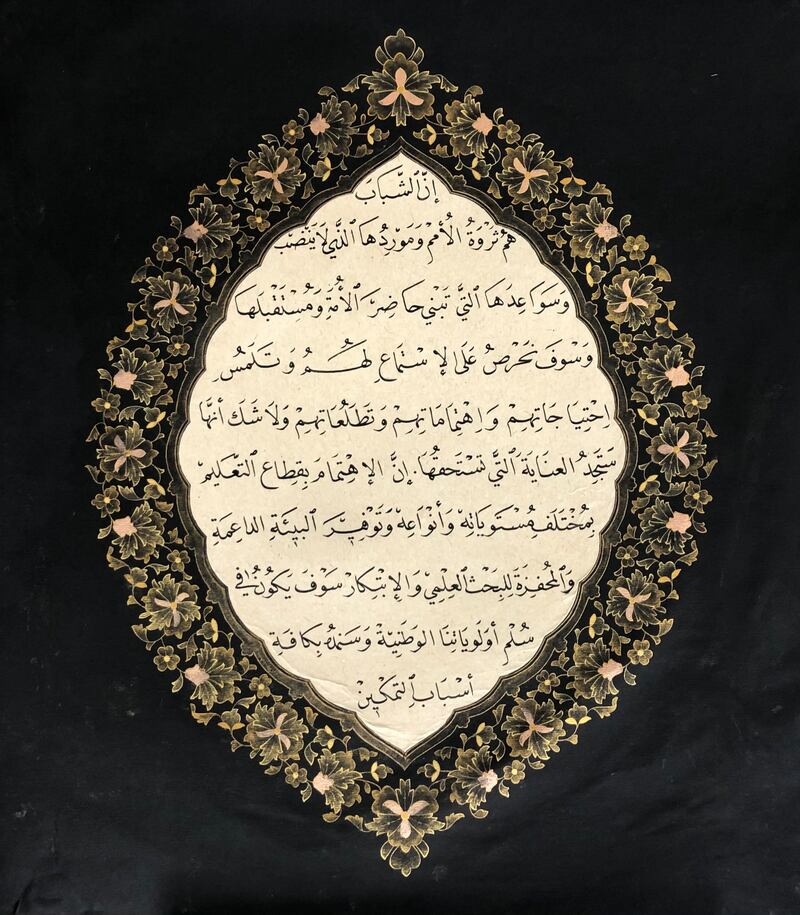 إنَّ الشَّبَابَ
هُمْ ثَرْوَةُ الأُمَمْ وَمَوْرِدُها الذَّي لَا يَنْضَبْ
وَسَوَاعِدَهَا التَّي تَبْني حاضِرَ الأُمَّةِ وَمُسْتَقْبَلَهَا
وَسَوْفَ نَحْرَصُ عَلَى الإِسْتِمَاعِ لَهُمْ وَتَلَمُسِ
احْتِيَاجَاتِهِمْ وَاِهْتِمَامَاتِهِمْ وَتَطَلُعَاتِهِمْ وَلَا شَكَ أنَّهَا
سَتَجِدُ العِنَايَةَ التَّي تَسْتَحِقُهَا. إنَّ الاِهْتِمَامَ بِقِطَاعِ التَّعْلِيمْ
بِمُخْتَلَفِ مُسْتَوَيَاتِهِ وَأنْوَاعِهْ وَتَوْفِيرَ البِيئَةِ الدَاعِمَةِ
وَالمُحْفِزَةَ لِلبَحْثِ العِلْمِيْ وَالإِبْتِكَارْ سَوْفَ يَكُونُ في
سُلَمِ أوْلَوِيَاتِنَا الوَطَنِيَةْ وَسَنَمُدُهُ بِكَافَةِ
أسْبَابِ التَمْكِينْ